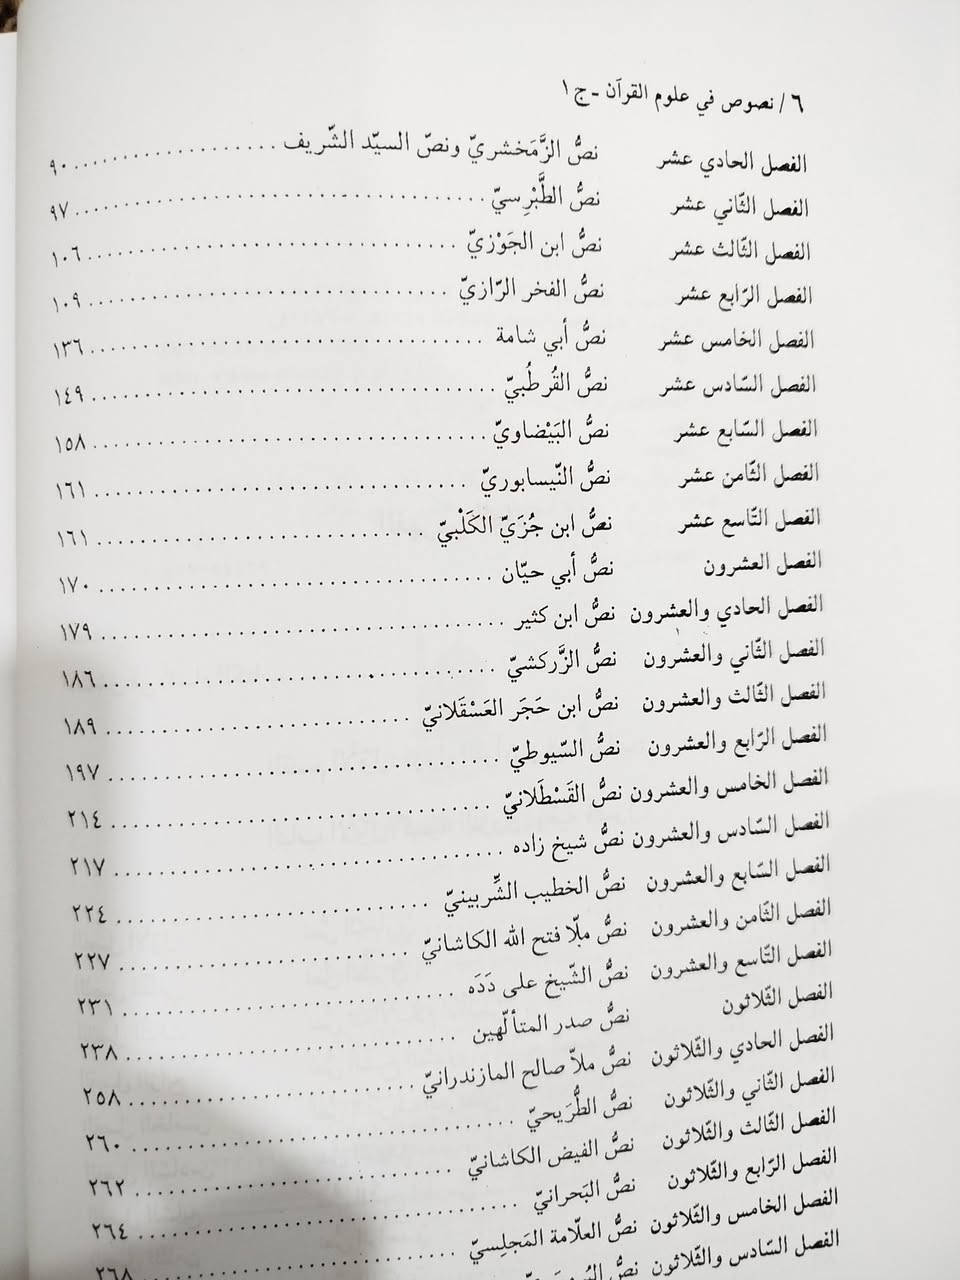 ٦ / نصوص في علوم القرآن - ج ١
الفصل الحادي عشر نصُّ الزَّمَخشريّ ونصّ السيّد الشّريف .................... ٩٠
الفصل الثّاني عشر نصُّ الطَّبْرِسيّ .................... ٩٧
الفصل الثّالث عشر نصُّ ابن الجَوْزيّ .................... ١٠٦
الفصل الرّابع عشر نصُّ الفخر الرّازيّ .................... ١٠٩
الفصل الخامس عشر نصُّ أبي شامة .................... ١٣٦
الفصل السّادس عشر نصُّ القُرطُبيّ .................... ١٤٩
الفصل السّابع عشر نصُّ البَيْضاويّ .................... ١٥٨
الفصل الثّامن عشر نصُّ النّيسابوريّ .................... ١٦١
الفصل التّاسع عشر نصُّ ابن جُزَيّ الكَلْبيّ .................... ١٦١
الفصل العشرون نصُّ أبي حيّان .................... ١٧٠
الفصل الحادي والعشرون نصُّ ابن كثير .................... ١٧٩
الفصل الثّاني والعشرون نصُّ الزَّركشيّ .................... ١٨٦
الفصل الثّالث والعشرون نصُّ ابن حَجَر العَسْقَلانيّ .................... ١٨٩
الفصل الرّابع والعشرون نصُّ السّيوطيّ .................... ١٩٧
الفصل الخامس والعشرون نصُّ القَسْطَلانيّ .................... ٢١٤
الفصل السّادس والعشرون نصُّ شيخ زاده .................... ٢١٧
الفصل السّابع والعشرون نصُّ الخطيب الشِّربينيّ .................... ٢٢٤
الفصل الثّامن والعشرون نصُّ ملّا فتح الله الكاشانيّ .................... ٢٢٧
الفصل التّاسع والعشرون نصُّ الشّيخ على دَدَه .................... ٢٣١
الفصل الثّلاثون نصُّ صدر المتألّهين .................... ٢٣٨
الفصل الحادي والثّلاثون نصُّ ملاّ صالح المازندرانيّ .................... ٢٥٨
الفصل الثّاني والثّلاثون نصُّ الطُّرَيحيّ .................... ٢٦٠
الفصل الثّالث والثّلاثون نصُّ الفيض الكاشانيّ .................... ٢٦٢
الفصل الرّابع والثّلاثون نصُّ البَحرانيّ .................... ٢٦٤
الفصل الخامس والثّلاثون نصُّ العلّامة المَجلِسيّ .................... ٢٦٨
الفصل السّادس والثّلاثون نصُّ